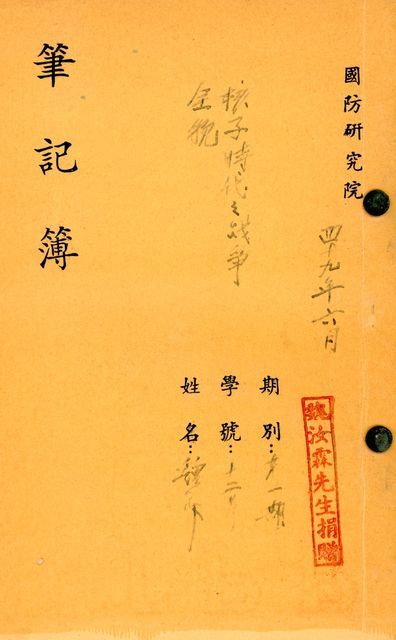 國防研究院
四十九年六月
魏汝霖先生捐贈
期別：第一期
學號：十二
姓名：
核子時代之戰爭
全貌
筆記簿